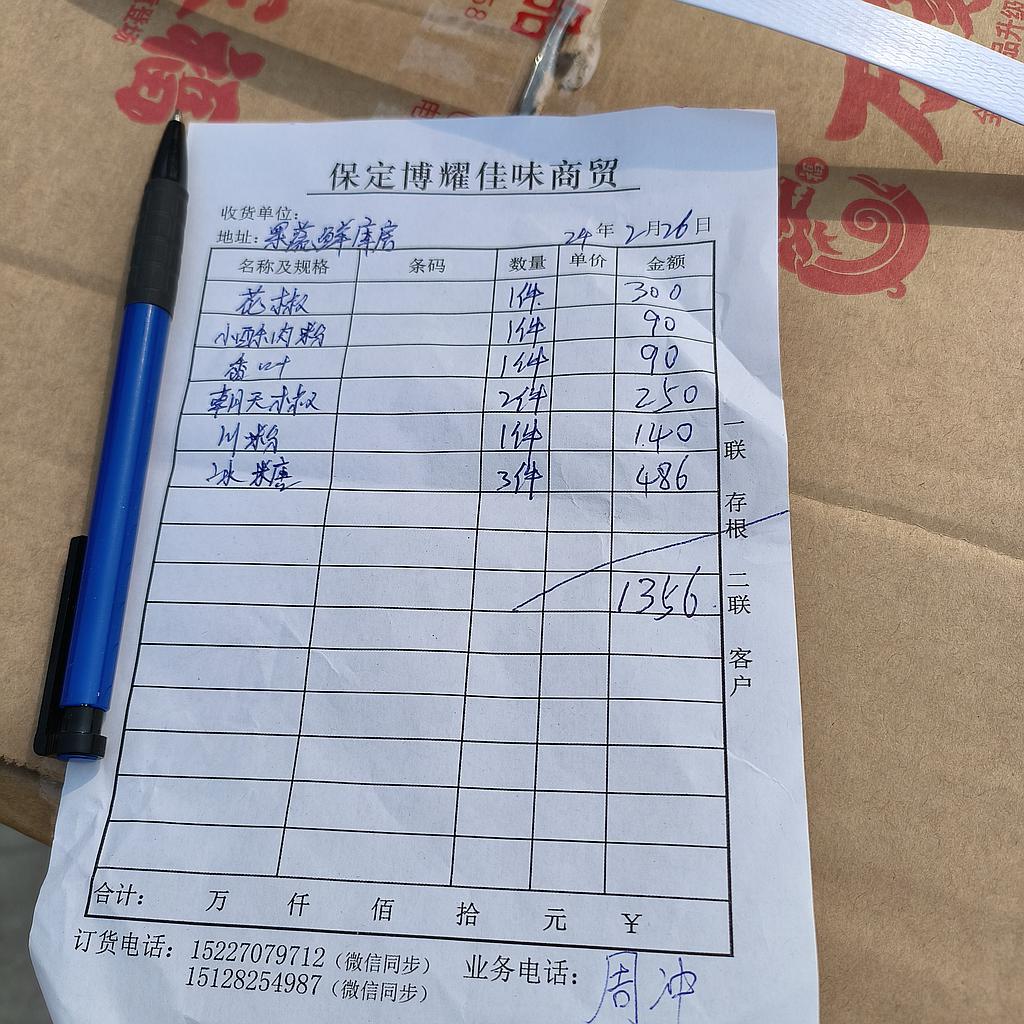 保定博耀佳味商贸
收货单位：
地址：果蔬鲜库房 24年2月26日
名称及规格 条码 数量 单价 金额
花椒 1件 300
小酥肉粉 1件 90
香叶 1件 90
朝天椒 2件 250
川粉 1件 140
冰糖 3件 486
1356
一联 存根 二联 客户
合计： 万 仟 佰 拾 元 ¥
订货电话：15227079712（微信同步） 业务电话：周冲
15128254987（微信同步）